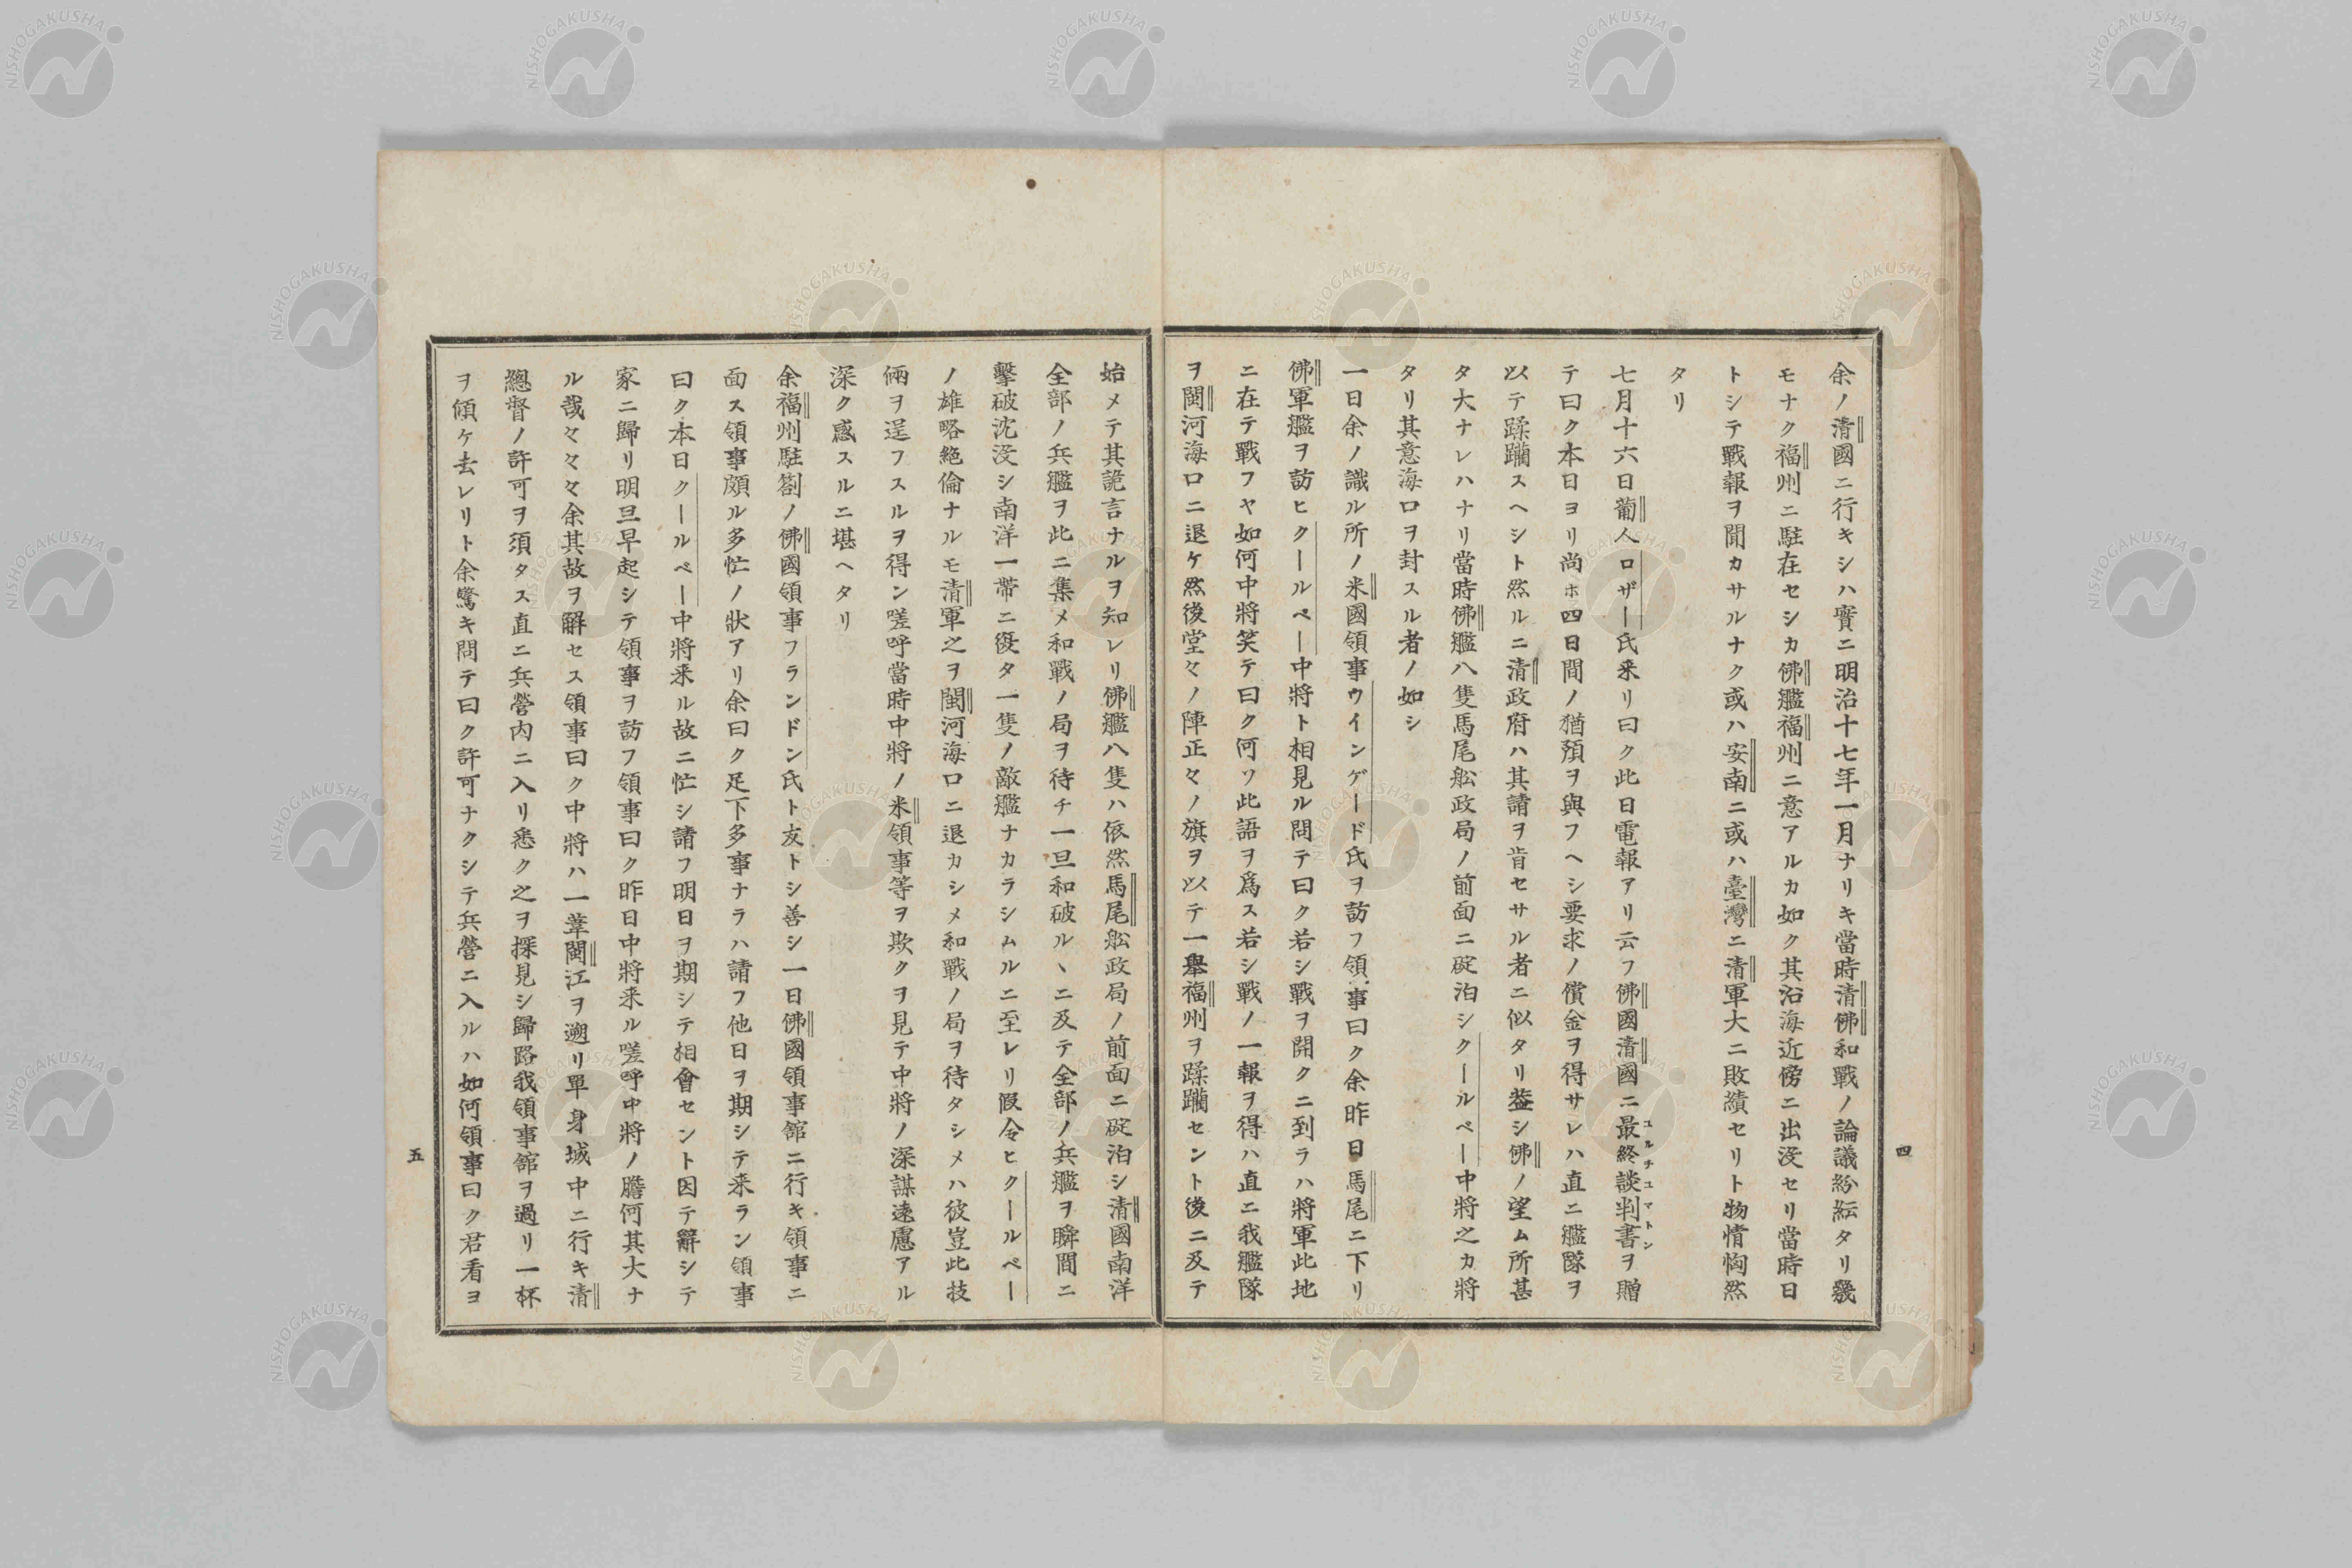 余ノ清國ニ行キシハ實ニ明治十七年一月ナリキ當時清佛和戰ノ論議紛紜タリ幾
モナク福州ニ駐在セシカ佛艦福州ニ意アルカ如ク其沿海近傍ニ出没セリ當時日
トシテ戰報ヲ聞カサルナク或ハ安南ニ或ハ臺灣ニ清軍大ニ敗績セリト物情恟然
タリ
七月十六日葡人ロザー氏来リ曰ク此日電報アリ云フ佛國清國ニ最終談判書ヲ贈
ユルチユマトン
テ曰ク本日ヨリ尚ホ四日間ノ猶預ヲ與フヘシ要求ノ償金ヲ得サレハ直ニ艦隊ヲ
以テ蹂躪スヘシト然ルニ清政府ハ其請ヲ肯セサル者ニ似タリ蓋シ佛ノ望ム所甚
タ大ナレハナリ當時佛艦八隻馬尾舩政局ノ前面ニ碇泊シクールペー中將之カ將
タリ其意海口ヲ封スル者ノ如シ
一日余ノ識ル所ノ米國領事ウインゲード氏ヲ訪フ領事曰ク余昨日馬尾ニ下リ
佛軍艦ヲ訪ヒクールペー中將ト相見ル問テ曰ク若シ戰ヲ開クニ到ラハ將軍此地
ニ在テ戰フヤ如何中將笑テ曰ク何ソ此語ヲ爲ス若シ戰ノ一報ヲ得ハ直ニ我艦隊
ヲ閩河海口ニ退ケ然後堂々ノ陣正々ノ旗ヲ以テ一舉福州ヲ蹂躪セント後ニ及テ
四
始メテ其詭言ナルヲ知レリ佛艦八隻ハ依然馬尾舩政局ノ前面ニ碇泊シ清國南洋
全部ノ兵艦ヲ此ニ集メ和戰ノ局ヲ待チ一旦和破ルヽニ及テ全部ノ兵艦ヲ瞬間ニ
擊破沈没シ南洋一帶ニ復タ一隻ノ敵艦ナカラシムルニ至レリ假令ヒクールペー
ノ雄略絶倫ナルモ清軍之ヲ閩河海口ニ退カシメ和戰ノ局ヲ待タシメハ彼豈此技
倆ヲ逞フスルヲ得ン嗟呼當時中將ノ米領事等ヲ欺クヲ見テ中將ノ深謀遠慮アル
深ク感スルニ堪ヘタリ
余福州駐劄ノ佛國領事フランドン氏ト友トシ善シ一日佛國領事舘ニ行キ領事ニ
面ス領事頗ル多忙ノ狀アリ余曰ク足下多事ナラハ請フ他日ヲ期シテ来ラン領事
曰ク本日クールペー中將来ル故ニ忙シ請フ明日ヲ期シテ相會セント因テ辭シテ
家ニ歸リ明旦早起シテ領事ヲ訪フ領事曰ク昨日中將来ル嗟呼中將ノ膽何其大ナ
ル哉々々々余其故ヲ解セス領事曰ク中將ハ一葦閩江ヲ遡リ單身城中ニ行キ清
總督ノ許可ヲ須タス直ニ兵營内ニ入リ悉ク之ヲ探見シ歸路我領事舘ヲ過リ一杯
ヲ傾ケ去レリト余驚キ問テ曰ク許可ナクシテ兵營ニ入ルハ如何領事曰ク君看ヨ
五